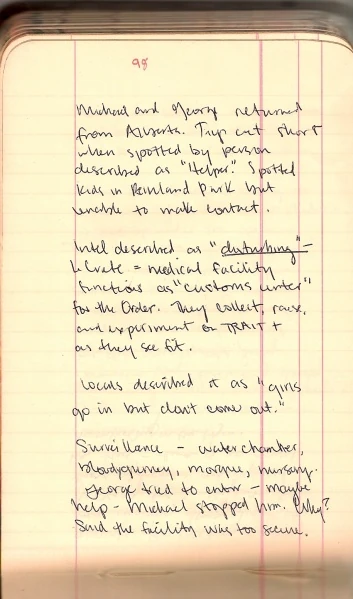 98
Michael and George returned
from Alberta. Trip cut short
when spotted by person
described as "Helper". Spotted
kids in Reinland Park but
unable to make contact.
Intel described as "disturbing" -
LeCrate = medical facility
functions as "customs center"
for the Order. They collect, raise,
and experiment on TRAIT +
as they see fit.
Locals described it as "girls
go in but don't come out."
Surveillance - water chamber,
bloody gurney, morgue, nursery.
George tried to enter - maybe
help - Michael stopped him. Why?
Said the facility was too secure.